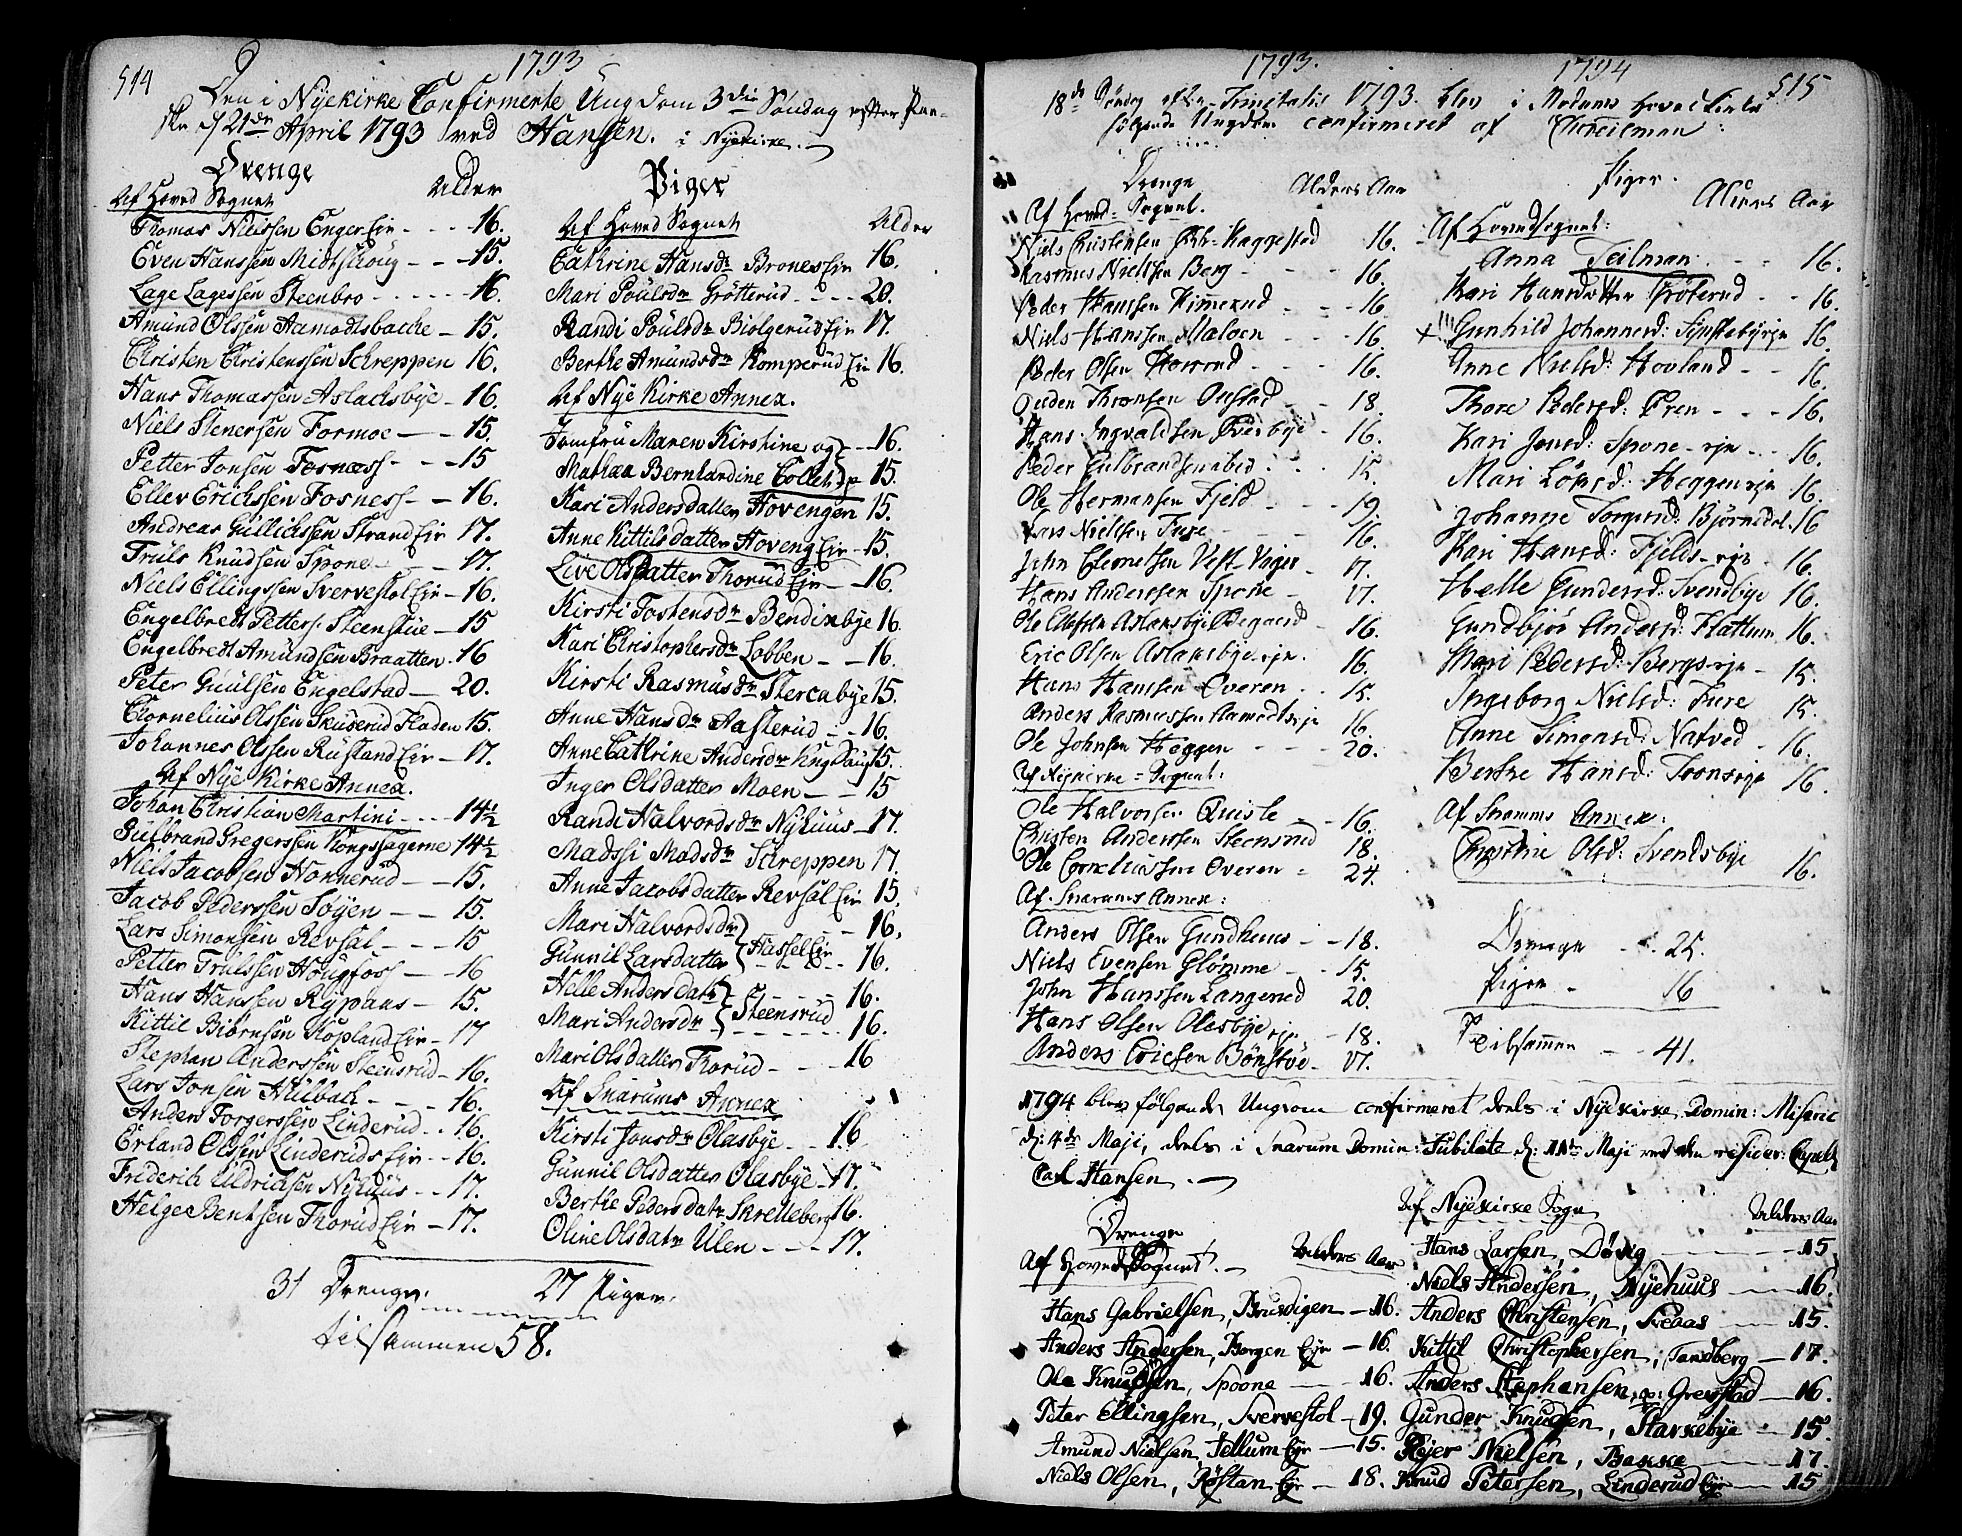 514
1793
Den i Nÿekirke Confirmerte Ungdom 3die Söndag efter Paa-
ske d 21de April 1793 ved Hansen. i Nÿekirke.
Drenge
Af Hoved Sognet Alder
Thomas Nielssen Enger Eie - 16.
Even Hanssen Midtschoug - 15.
Lage Lagessen Steenbro - 16.
Amünd Olssen Aamodtsbache - 15.
Christen Christenssen Schreppen 16.
Hans Thomassen Aslachsbÿe - 16.
Niels Stenersen Formoe - 15.
Petter Jonsen Fosnæss - 15
Ellev Erichssen Fosness - 16.
Andreas Güllichssen Strand Eie 17.
Trüls Knüdsen Spone - 17.
Niels Ellingssen Svervestol Eie - 16.
Engelbredt Petters: Steenstüe - 15
Engelbredt Amündsen Braatten. 16
Peter Guulsen Engelstad - 20.
Cornelius Olssen Skuserud Floden 15.
Johannes Olssen Rüstand Eie - 17.
Af Nÿe Kirke Annex.
Johan Christian Martini - 14½
Gülbrand Gregerssen Kongssagerne 14½
Niels Jacobsen Honnerüd - 15.
Jacob Pederssen Soÿen - 15.
Lars Simonsen Revsal - 15
Petter Trülssen Hougfoss - 16
Hans Hanssen Rÿpaas - 15.
Kittil Biörnsen Kopland Eie - 17
Stephan Anderssen Steensrud - 16.
Lars Jonsen Hülbach - 16.
Anders Torgerssen Linderud - 16.
Erland Olssen Linderuds Eie - 16.
Friderich Üldrichsen Nÿhüüs - 17.
Helge Bentsen Thorud Eie - 17.
Piger
Af Hoved Sognet Alder
Cathrine Hansdr Broness Eie 16.
Mari Poülsdr Gröttesrud - 20.
Randi Poülsdr Biolgerud Eie 17.
Berthe Amündsdr Komperüd Eie 16.
Af Nÿe Kirke Annex.
Jomfrü Maren Kirstine og - 16.
Mathea Bernhardine Collett 15.
Kari Andersdatter Hovengen 15.
Anne Kittilsdatter Hoveng Eie - 15.
Live Olsdatter Thorüd Eie - 16.
Kirsti Tostensdr Bendixbÿe 16.
Kari Christophersdr Lobben - 16.
Kirsti Rasmüsdr Stercabÿe 15.
Anne Hansdr Aasterüd - 16.
Anne Cathrine Andersdr 15.
Inger Olsdatter Moen - 15
Randi Halvordsdr Nÿhüüs - 17.
Madssi Madsdr Schreppen 17.
Anne Jacobsdatter Revsal Eie 15.
Mari Halvordsdr - 16.
Günnil Larsdatter Hassel Eie 16.
Helle Andersdatr - 16.
Mari Andersdr Steensrüd 16.
Mari Olsdatter Thorud - 16
Af Snarüms Annex
Kirsti Jonsdr Olasbÿe - 16
Günnil Olsdatter Olasbÿe - 17.
Berthe Pedersdatr Skrelleberg 16.
Oline Olsdatr Ulen - 17.
31 Drenge. 27 Piger.
tilsammen 58.
1793. 1794 515
18de Söndag efter Trinitatis 1793. blev i Modums Hoved Kirke
følgende Ungdom confirmeret af Theilman:
Drenge Alders Aar
Af Hoved-Sognet.
Niels Christensen Haggestad 16.
Rasmus Nielssen Berg - 16.
Peder Hanssen Kimerud - 16.
Niels Hanssen Maloen - 16.
Peder Olsen Hovrud - 16.
Ouden Thronsen Onstad - 18.
Hans Ingvaldsen - 16.
Peder Gulbrandsen - 15.
Ole Hermansen Fjeld - 19.
Lars Nielssen Fure - 16.
John Vest-Viger - 17.
Hans Anderssen Spone - 17.
Ole Ellefsen Aslaksbye - 16.
Eric Olsen Aslaksbye-eje. 16.
Hans Hanssen Overen - 15.
Anders Rasmussen Aamodtseje 16.
Ole Johnsen Heggen - 20.
Af Nykirke-Sognet:
Ole Halvorsen Quisle - 16.
Christen Anderssen Steensrud 18.
Ole Corneliussen Overen - 24.
Af Snarums Annex:
Anders Olsen Gundhuus - 18.
Niels Evensen Glömme - 15.
John Hanssen Langerud 20.
Hans Olsen Olasbye eje - 18.
Anders Ericsen Bönstöe - 17.
Piger. Alders Aar
Af Hovedsognet:
Anna Teilman - 16.
Kari Hansdatter Gröterud - 16.
+ Gunhild Johannesd: 16.
Anne Nielsd: Hovland - 16.
Thore Pedersd: Fren - 16.
Kari Jonsd: Spone-eje - 16.
Mari Heggen eje 16.
Johanne Torgersd: Björnedal. 16
Kari Hansd: Fjelds-eje 16.
Helle Gundersd: Svendbye 16.
Gundbjör Andersd: Flattum 16.
Mari Pedersd: Bergs-eje - 15.
Ingeborg Nielsd: Fure 15.
Anne Simensd: Natved - 16.
Berthe Hansd: 16.
Af Snarums Annex:
Christine Olsd: Svendsbye 16.
Drenge - 25.
Piger - 16
Tilsammen - 41.
1794 blev følgende Ungdom confirmeret deels i Nyekirke Domin: Miseric
d: 4de Maji, deels i Snarum Domin: Jubilate d: 11te Maji ved den resider: Capel:
Carl Hansen.
Drenge
Af Hoved Sognet. Alders Aar
Hans Gabrielsen, Brusdigen - 16.
Anders Andersen, Borgen Eje - 16.
Ole Knudsen, Spoone - 16.
Peter Ellingsen, Svervestol - 19.
Amund Nielsen, Tellum Eje - 15.
Niels Olsen, Røstan Eje - 18.
Af Nyekirke Sogn Alders Aar
Hans Larsen, Døvig - 15
Niels Andersen, Nyehuus - 16.
Anders Christensen, Sveaas - 15.
Kittil Christophersen, Tandberg - 17.
Anders Stephansen, Grevstad - 16.
Gunder Knudsen, Starkebye - 15.
Rejer Nielsen, Bakke - 17.
Knud Petersen, Linderud Eje - 15